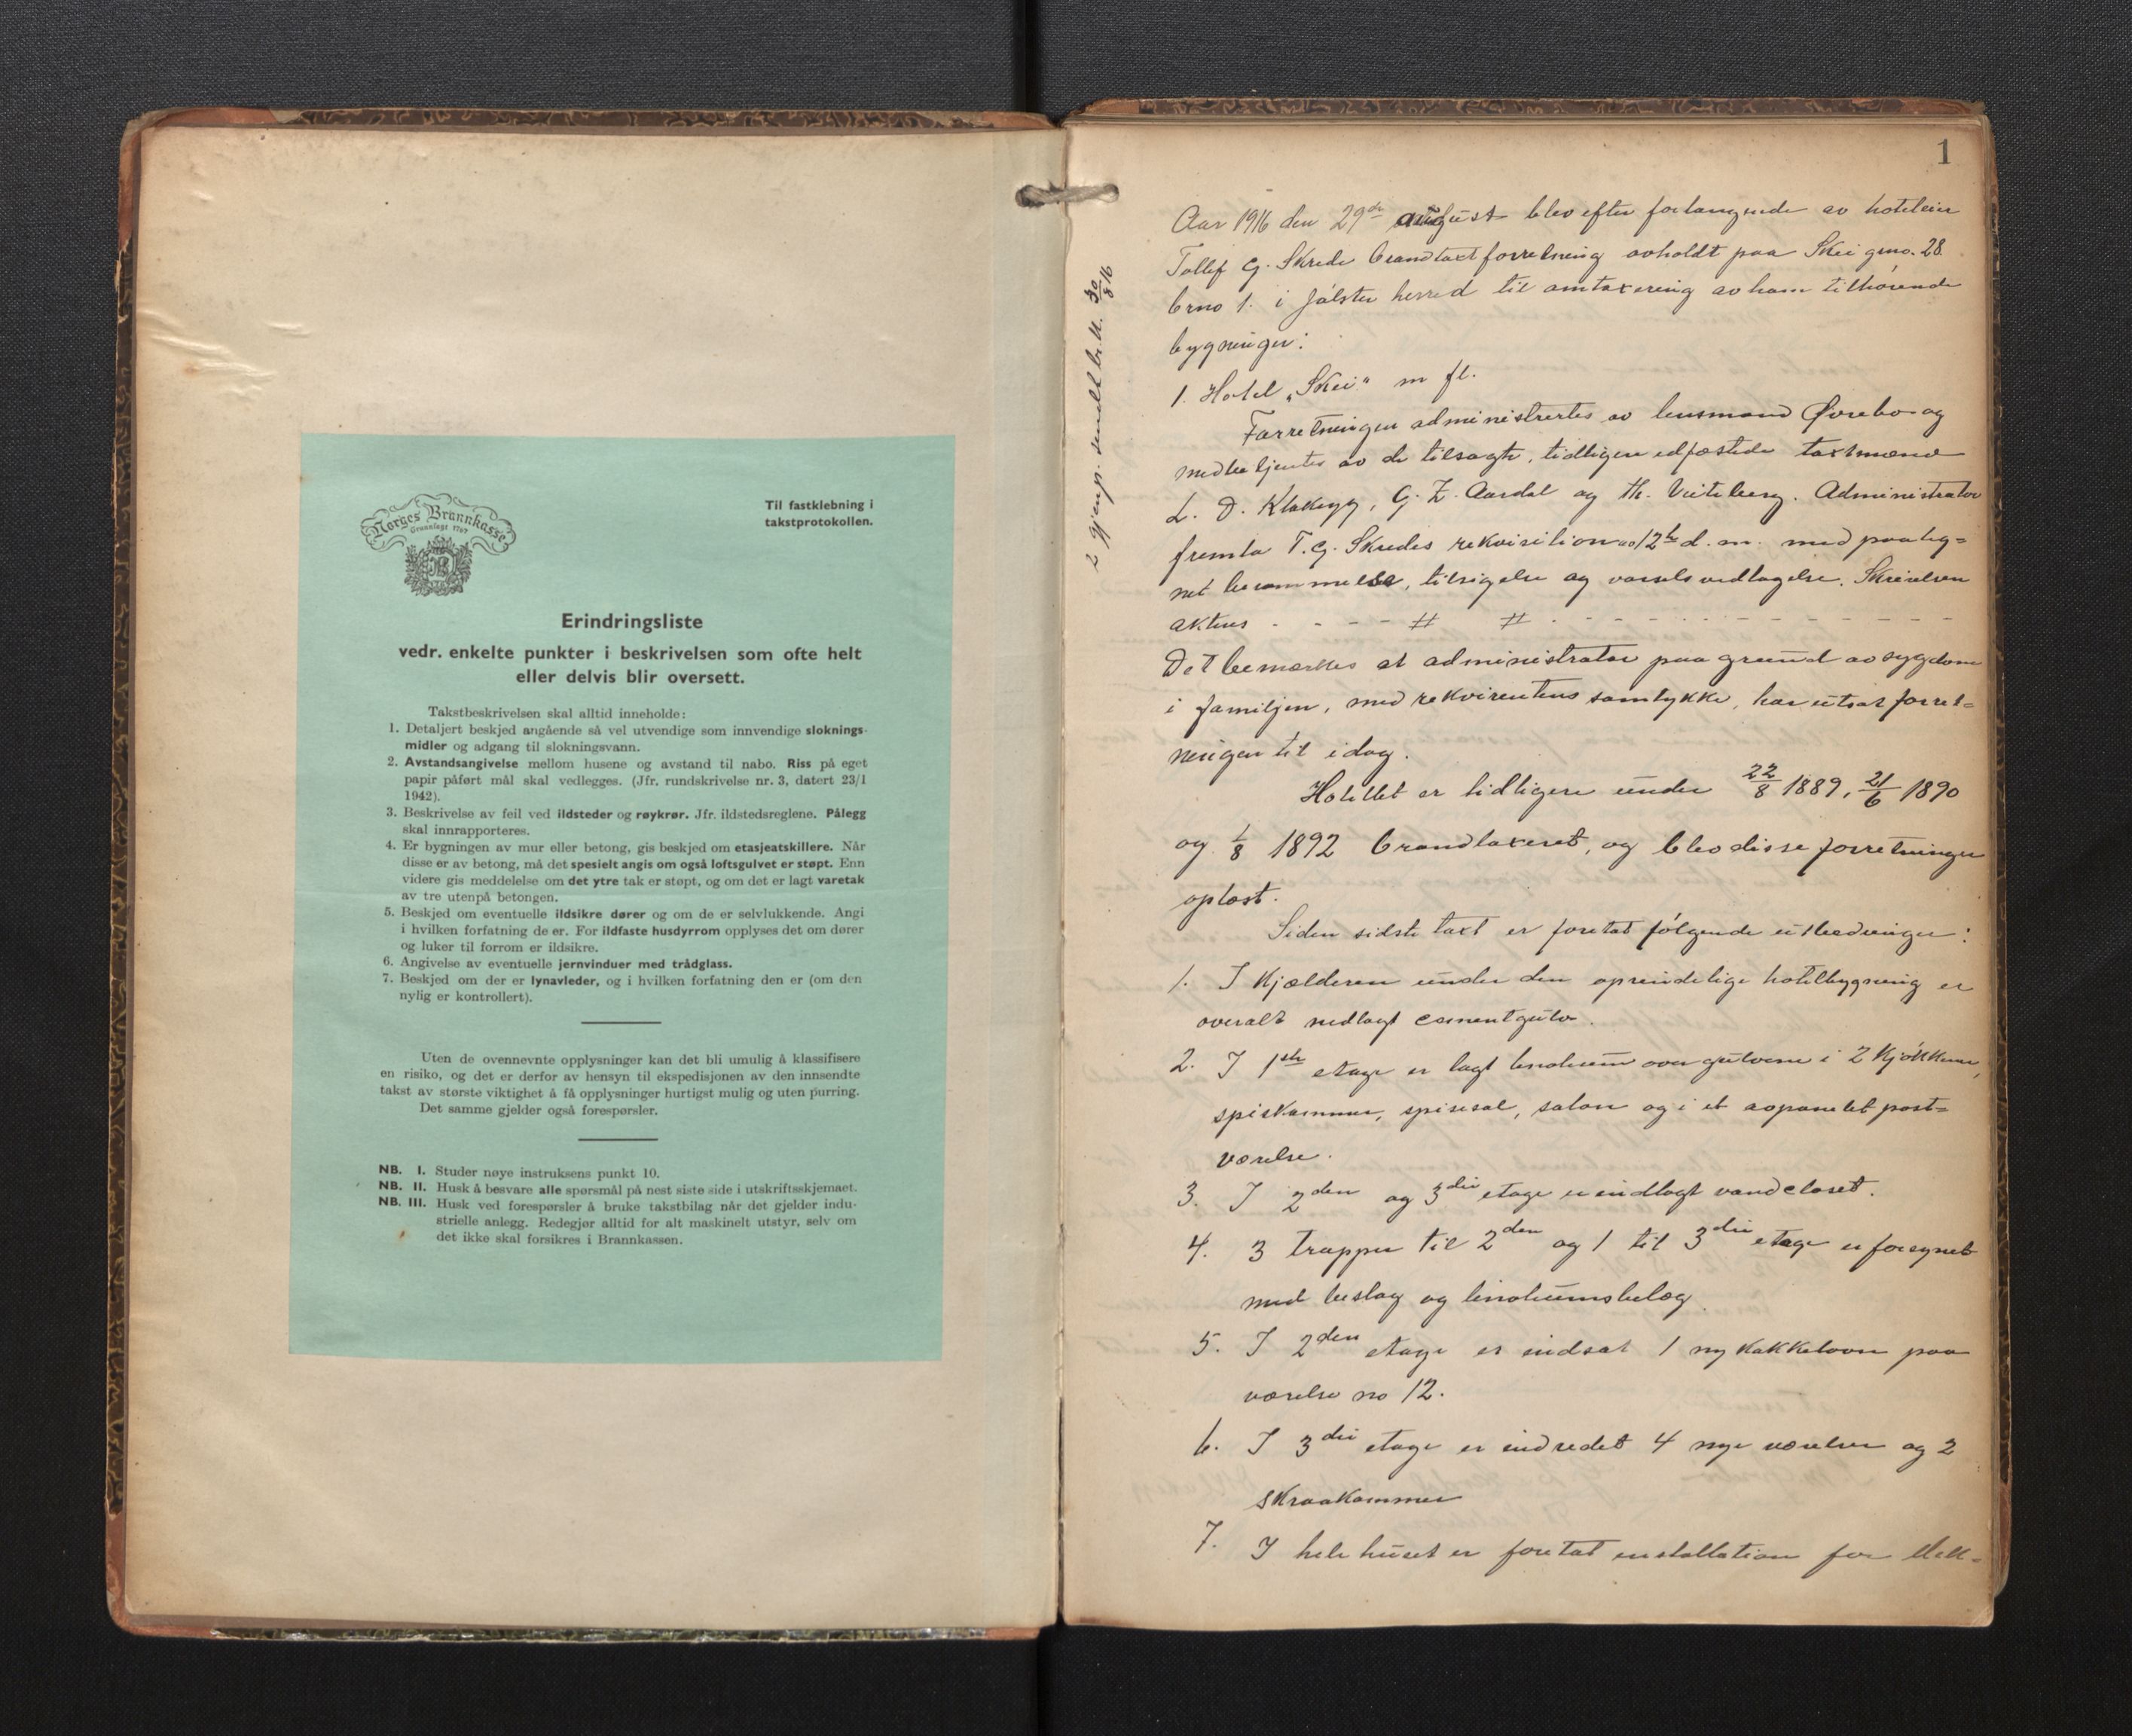 Norges Brannkasse
Grunnlagt 1767
Til fastklebning i
takstprotokollen.
Erindringsliste
vedr. enkelte punkter i beskrivelsen som ofte helt
eller delvis blir oversett.
Takstbeskrivelsen skal alltid inneholde:
1. Detaljert beskjed angående så vel utvendige som innvendige sloknings-
midler og adgang til slokningsvann.
2. Avstandsangivelse mellom husene og avstand til nabo. Riss på eget
papir påført mål skal vedlegges. (Jfr. rundskrivelse nr. 3, datert 23/1
1942).
3. Beskrivelse av feil ved ildsteder og røykrør. Jfr. ildstedsreglene. Pålegg
skal innrapporteres.
4. Er bygningen av mur eller betong, gis beskjed om etasjeatskillere. Når
disse er av betong, må det spesielt angis om også loftsgulvet er støpt. Enn
videre gis meddelelse om det ytre tak er støpt, og om det er lagt varetak
av tre utenpå betongen.
5. Beskjed om eventuelle ildsikre dører og om de er selvlukkende. Angi
i hvilken forfatning de er. For ildfaste husdyrrom opplyses det om dører
og luker til forrom er ildsikre.
6. Angivelse av eventuelle jernvinduer med trådglass.
7. Beskjed om der er lynavleder, og i hvilken forfatning den er (om den
nylig er kontrollert).
Uten de ovennevnte opplysninger kan det bli umulig å klassifisere
en risiko, og det er derfor av hensyn til ekspedisjonen av den innsendte
takst av største viktighet å få opplysninger hurtigst mulig og uten purring.
Det samme gjelder også forespørsler.
NB. I. Studer nøye instruksens punkt 10.
NB. II. Husk å besvare alle spørsmål på nest siste side i utskriftsskjemaet.
NB. III. Husk ved forespørsler å bruke takstbilag når det gjelder indu-
strielle anlegg. Redegjør alltid for alt maskinelt utstyr, selv om
det ikke skal forsikres i Brannkassen.
1
2 gjenp. sendt 30/8 16
Aar 1916 den 29de august blev efter forlangende av hoteleier
Tollef G. Skrede brandtaxtforretning avholdt paa Skei gno. 28
brno 1. i Jølster herred til omtaxering av ham tilhørende
bygninger:
1. Hotel „Skei" m fl.
Forretningen administrertes av lensmand Øvrebo og
medbetjentes av de tilsagte, tidligere edfæstede taxtmænd
L. D. Klakegg, G. Z. Aardal og Th. Viteberg. Administrator
fremla T. G. Skredes rekvisition av 12te d. m. med paateg-
net berammelse, tilsigelse og varselsvedtagelse. Skrivelsen
aktens - - - - # # - - - - - - - - - -
Det bemærkes at administrator paa grund av sygdom
i familjen, med rekvirentens samtykke, har utsat forret-
ningen til idag.
Hotellet er tidligere under 22/8 1889, 21/6 1890
og 1/8 1892 brandtaxeret, og blev disse forretninger
oplæst.
Siden sidste taxt er foretat følgende utbedringer:
1. I kjælderen under den oprindelige hotelbygning er
overalt nedlagt cementgulv.
2. I 1ste etage er lagt linoleum over gulvene i 2 kjøkkener,
spiskammer, spisesal, salon og i et avpanelet post-
værelse.
3. I 2den og 3die etage er indlagt vandcloset.
4. 3 trapper til 2den og 1 til 3die etage er forsynet
med beslag og linoleumsbelæg.
5. I 2den etage er indsat 1 ny kakkelovn paa
værelse no 12.
6. I 3die etage er indredet 4 nye værelser og 2
skraakammer
7. I hele huset er foretat installation for elek-